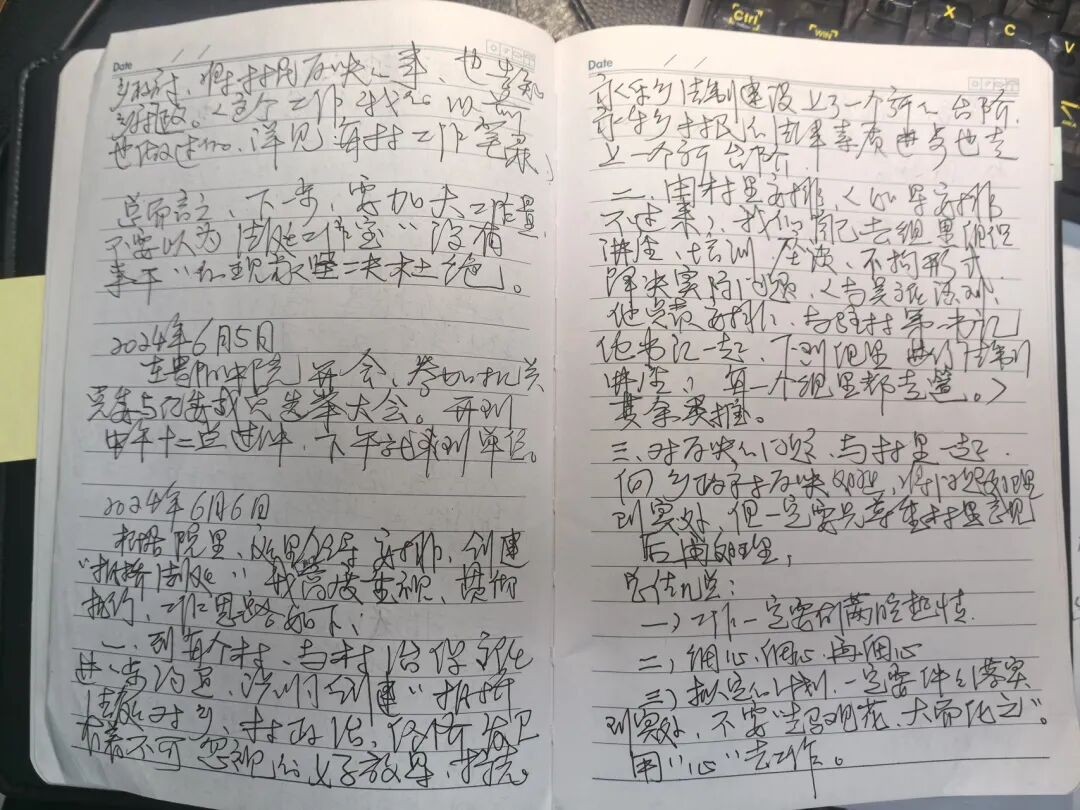 Date / /
乡政府，将村因解决人事，也告知
村政。（这个工作我们以前
也做过的，详见每村工作笔录）
总而言之，下步，要加大工作量
不要以为"法庭工作室"没有
事干"的观点坚决杜绝。
2024年6月5日
在贵阳中院开会，参加机关
党委与纪委换届选举大会。开到
中午十二点过钟，下午就回到单位。
2024年6月6日
根据院里、庭里领导安排，创建
"枫桥法庭"我高度重视，贯彻
执行，工作思路如下：
一、到每个村，与村治保主任
进一步沟通，说明创建"枫桥
法庭"对乡，村政治，经济发展
有着不可忽视的
Date / /
永乐乡法制建设上了一个新的台阶，
永乐乡村民的法律素质进步也走
上一个新台阶。
二、由村里安排，（如果安排
不过来），我们自己去组里组织
讲座、培训、座谈、不拘形式，
解决实际问题，（与吴
他负责安排，与驻村第一书记
他书记一起，下到组里进行法律
讲座，每一个组里都走遍。）
其余类推。
三、对解决的问题，与村里一起
向乡政府解决处理，将问题办理
到实处，但一定要先尊重村里意见
后再办理；
总体几点：
一）工作一定要有满腔热情
二）细心、细心、再细心
三）拟定的计划，一定要件件落实
到实处，不要"走马观花，大而化之"。
用"心"去工作。
Ctrl
Win
X
C
V